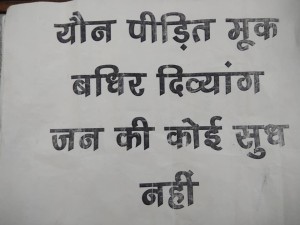 यौन पीड़ित मूक
बधिर दिव्यांग
जन की कोई सुध
नहीं